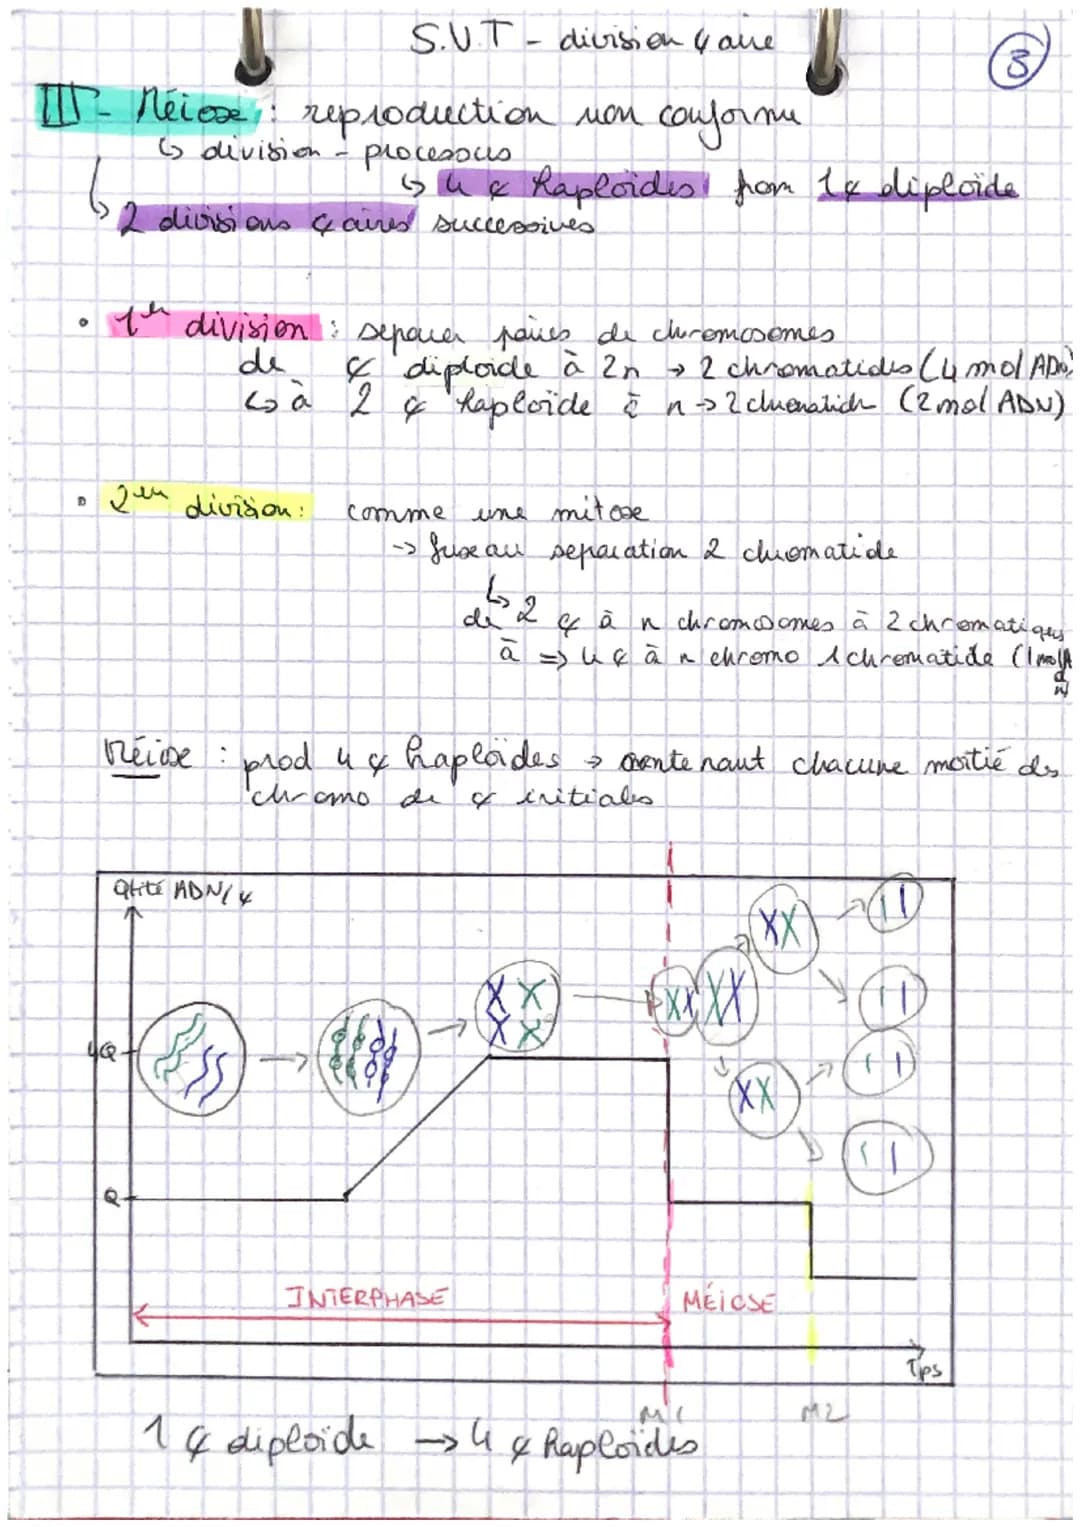 S.V.T - division ¢aire
3
III - Méiose : reproduction non conforme
↳ division - processus
↳ 4 ¢ haploïdes from 1¢ diploïde
↳ 2 divisions ¢aires successives
• 1er division : separer paires de chromosomes
de ¢ diploïde à 2n → 2 chromatides (4 mol ADN)
↳ à 2 ¢ haploïde à n → 2 chromatide (2 mol ADN)
• 2em division : comme une mitose
→ fuseau separation 2 chromatide
↳ de 2 ¢ à n chromosomes à 2 chromatiques
à ⇒ 4 ¢ à n chromo 1 chromatide (1 mol Adn)
Méiose : prod 4 ¢ haploïdes → contenant chacune moitié des
chromo de ¢ initiales
Qtité ADN/¢
4Q
Q
INTERPHASE
MÉIOSE
Tps
M1
M2
1 ¢ diploïde → 4 ¢ haploïdes